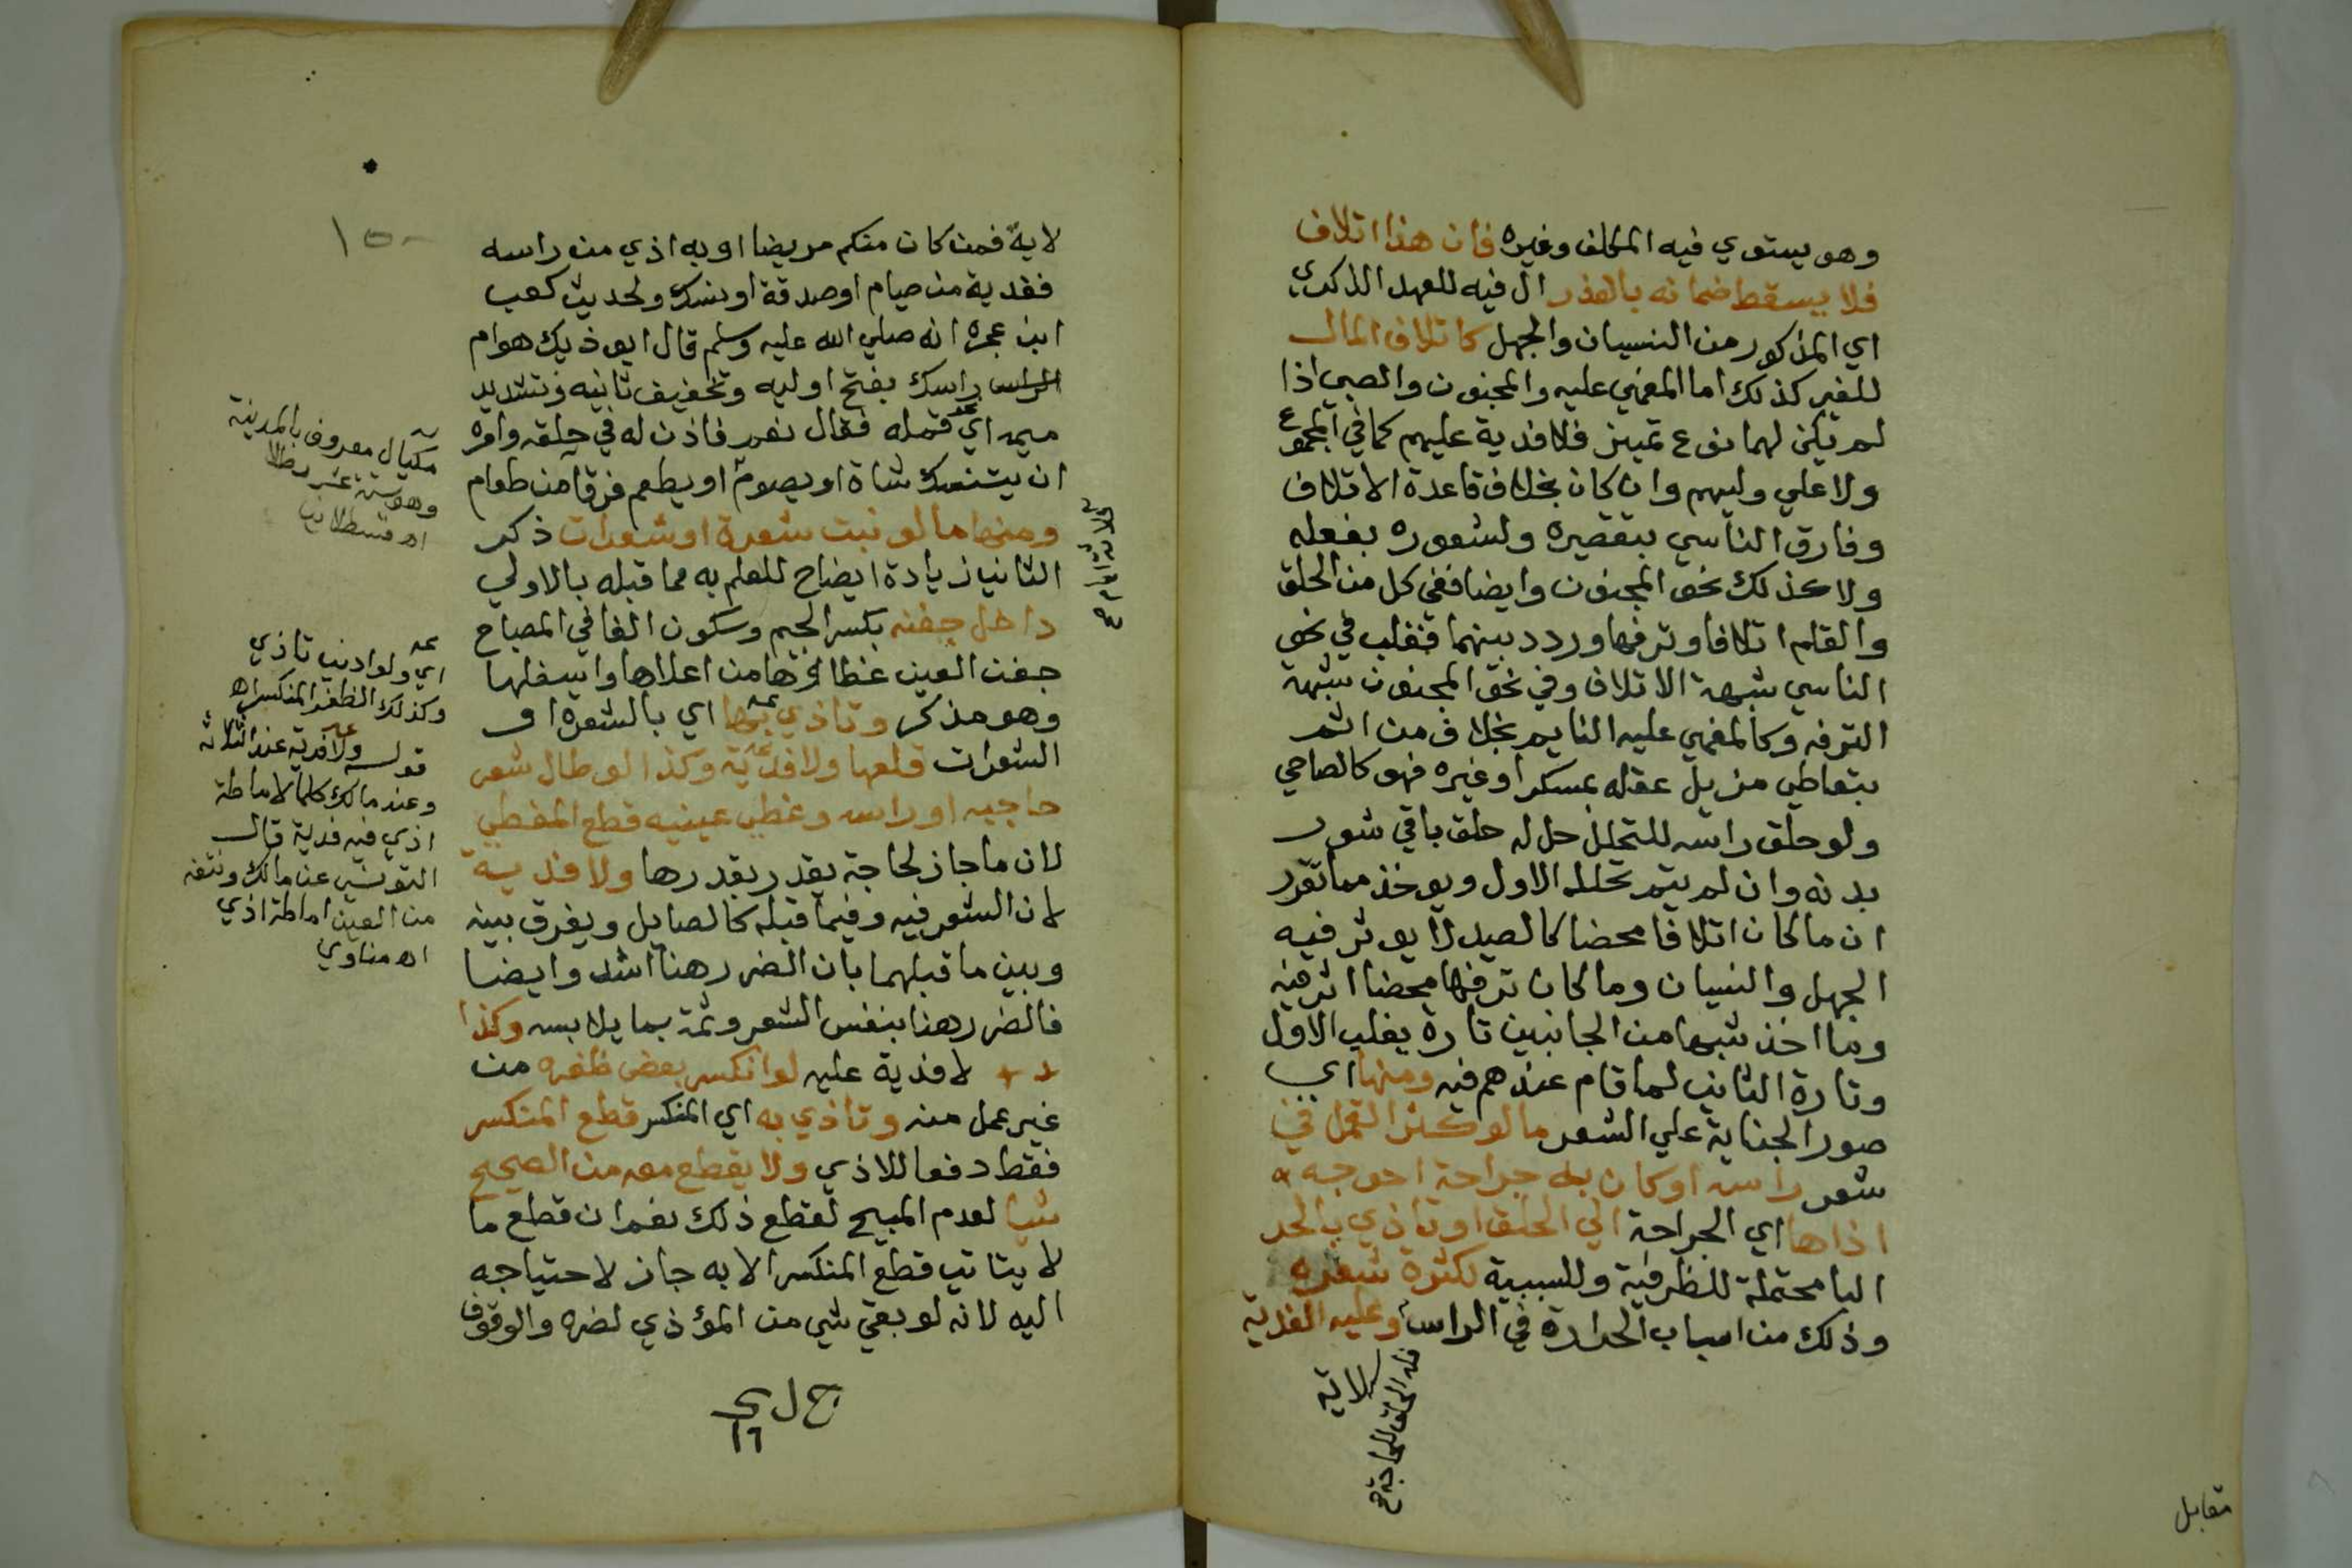 وهو يستوي فيه المكلف وغيره فان هذا اتلاف
فلا يسقط ضمانه بالعذر ال فيه للعهد الذكري
اي المذكور من النسيان والجهل كاتلاف المال
للغير كذلك اما المغمي عليه والمجنون والصبي اذا
لم يكن لهما نوع تمييز فلا فدية عليهم كما في المجموع
ولا علي وليهم وان كان بخلاف قاعدة الاتلاف
وفارق الناسي بتقصيره ولشعوره بفعله
ولا كذلك نحو المجنون وايضا ففي كل من الحلق
والقلم اتلافا وترفها وردد بينهما فغلب في نحو
الناسي شبهة الاتلاف وفي نحو المجنون شبهة
الترفه وكالمغمي عليه النايم بخلاف من اثم
بتعاطي مزيل عقله بمسكر او غيره فهو كالصاحي
ولو حلق راسه للتحلل حل له حلق باقي شعور
بدنه وان لم يتم تحلله الاول ويوخذ مما تقرر
ان ما كان اتلافا محضا كالصيد لا يوثر فيه
الجهل والنسيان وما كان ترفها محضا اثر فيه
وما اخذ شبها من الجانبين تارة يغلب الاول
وتارة الثاني لما قام عندهم فيه ومنها اي
صور الجناية علي الشعر ما لو كثر القمل في
شعر راسه او كان به جراحة احوجه
اذاها اي الجراحة الي الحلق او تاذي بالحر
البا محتملة للظرفية وللسببية لكثرة شعره
وذلك من اسباب الحرارة في الراس وعليه الفدية
فله الحلق للحاجة صح
للاية
مقابل
لاية فمن كان منكم مريضا او به اذي من راسه
ففدية من صيام او صدقة او نسك ولحديث كعب
ابن عجره انه صلي الله عليه وسلم قال ايوذيك هوام
الراس راسك بفتح اوليه وتخفيف ثانيه وتشديد
ميمه اي قمله فقال نعم فاذن له في حلقه وامره
ان يتنسك شاة او يصوم او يطعم فرقا من طعام
ومنها ما لو نبت شعرة او شعرات ذكر
الثانيا زيادة ايضاح للعلم به مما قبله بالاولي
داخل جفنه بكسر الجيم وسكون الفا في المصباح
جفن العين غطاؤها من اعلاها واسفلها
وهو مذكر وتاذي بها اي بالشعرة او
الشعرات قلعها ولا فدية وكذا لو طال شعر
حاجبه او راسه وغطي عينيه قطع المغطي
لان ما جاز لحاجة يقدر بقدرها ولا فدية
لان الشعر فيه وفيما قبله كالصايل ويفرق بينه
وبين ما قبلهما بان الضرر هنا اشد وايضا
فالضرر هنا بنفس الشعر وثمة بما يلابسه وكذا
لا فدية عليه لو انكسر بعض ظفره من
غير عمل منه وتاذي به اي المنكسر قطع المنكسر
فقط دفعا للاذي ولا يقطع معه من الصحيح
شيا لعدم المبيح لقطع ذلك نعم ان قطع ما
لا يتاتي قطع المنكسر الا به جاز لاحتياجه
اليه لانه لو بقي شي من المؤذي لضره والوقوف
ثلاثة ايام صح
مكيال معروف بالمدينة
وهو ستة عشر رطلا
اه قسطلاني
اي ولو ادني تاذي
وكذلك الظفر المنكسر اه
قوله ولا فدية عند الثلاثة
وعند مالك كلما لاماطة
اذي فيه فدية قال
التونسي عن مالك ونتفه
من العين اماطة اذي
اه مناوي
١٥٠
١٦